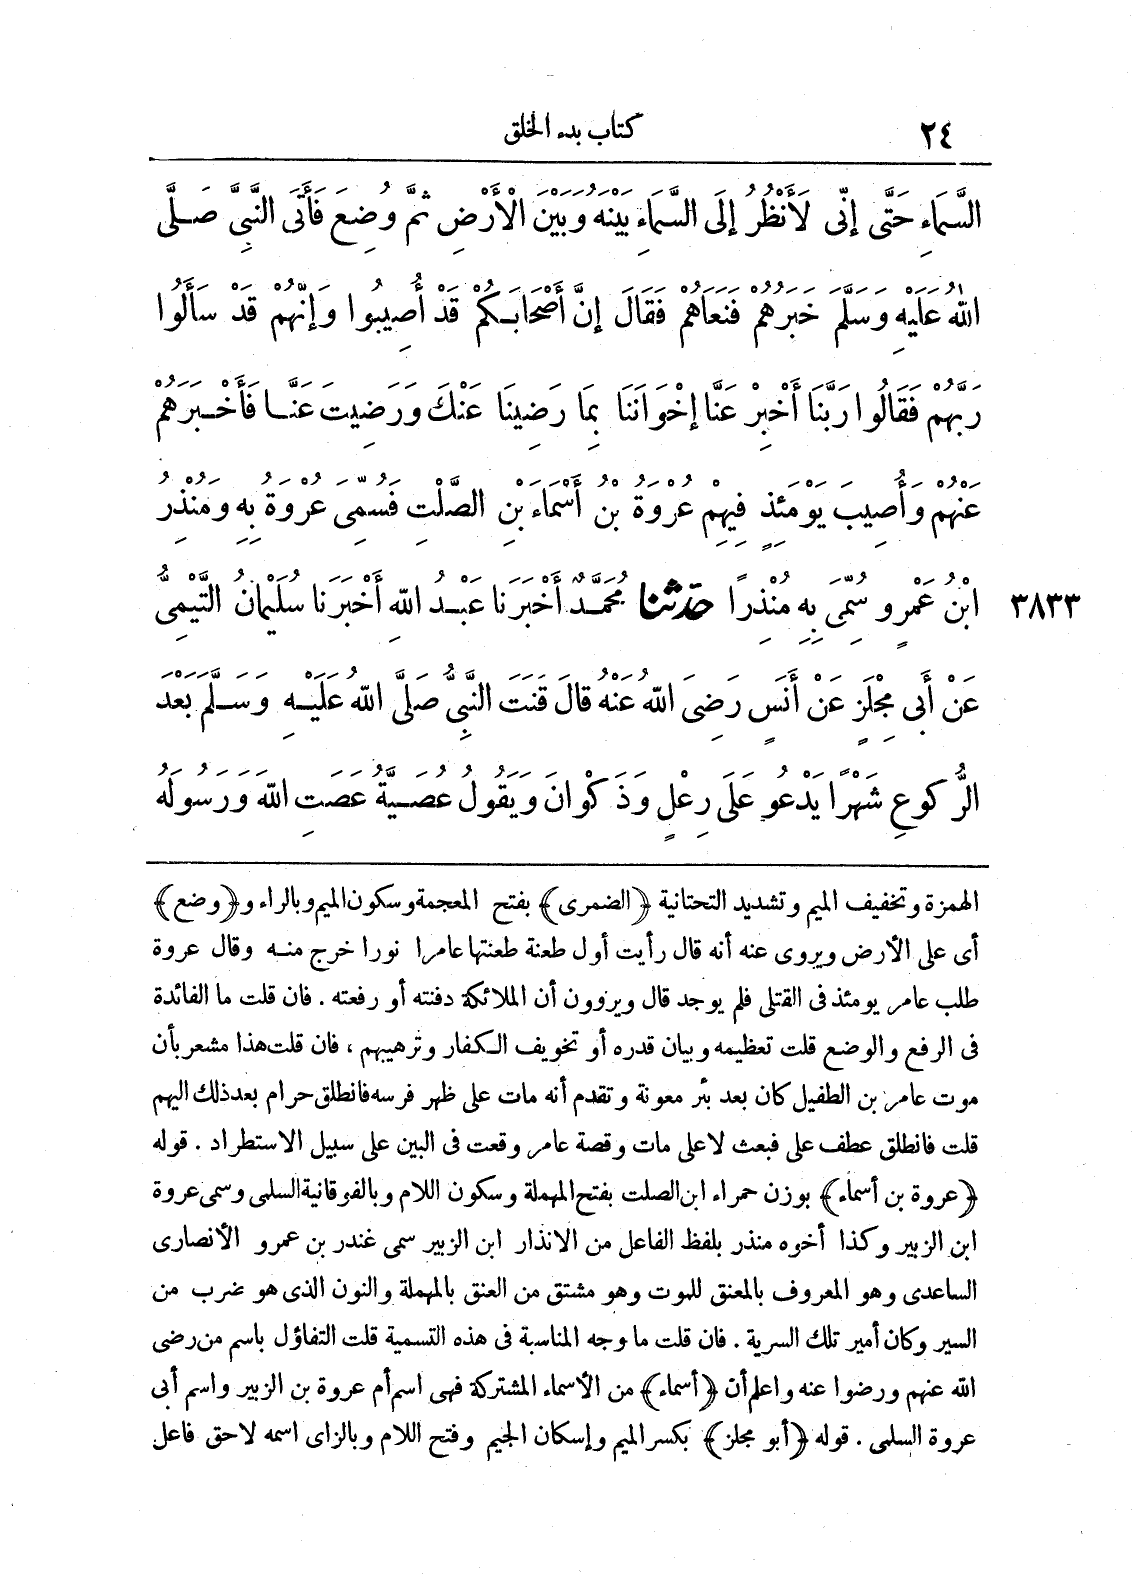 ٢٤ كتاب بدء الخلق
السَّمَاءِ حَتَّى إِنِّى لَأَنْظُرُ إِلَى السَّمَاءِ بَيْنَهُ وَبَيْنَ الْأَرْضِ ثُمَّ وُضِعَ فَأَتَى النَّبِىَّ صَلَّى
اللهُ عَلَيْهِ وَسَلَّمَ خَبَرُهُمْ فَنَعَاهُمْ فَقَالَ إِنَّ أَصْحَابَكُمْ قَدْ أُصِيبُوا وَإِنَّهُمْ قَدْ سَأَلُوا
رَبَّهُمْ فَقَالُوا رَبَّنَا أَخْبِرْ عَنَّا إِخْوَانَنَا بِمَا رَضِينَا عَنْكَ وَرَضِيتَ عَنَّا فَأَخْبَرَهُمْ
عَنْهُمْ وَأُصِيبَ يَوْمَئِذٍ فِيهِمْ عُرْوَةُ بْنُ أَسْمَاءَ بْنِ الصَّلْتِ فَسُمِّىَ عُرْوَةُ بِهِ وَمُنْذِرُ
ابْنُ عَمْرٍو سُمِّىَ بِهِ مُنْذِرًا حَدَّثَنَا مُحَمَّدٌ أَخْبَرَنَا عَبْدُ اللهِ أَخْبَرَنَا سُلَيْمَانُ التَّيْمِىُّ ٣٨٣٣
عَنْ أَبِى مِجْلَزٍ عَنْ أَنَسٍ رَضِىَ اللهُ عَنْهُ قَالَ قَنَتَ النَّبِىُّ صَلَّى اللهُ عَلَيْهِ وَسَلَّمَ بَعْدَ
الرُّكُوعِ شَهْرًا يَدْعُو عَلَى رِعْلٍ وَذَكْوَانَ وَيَقُولُ عُصَيَّةُ عَصَتِ اللهَ وَرَسُولَهُ
الهمزة وتخفيف الميم وتشديد التحتانية ﴿الضمرى﴾ بفتح المعجمة وسكون الميم وبالراء و﴿وضع﴾
أى على الأرض ويروى عنه أنه قال رأيت أول طعنة طعنتها عامرا نورا خرج منه وقال عروة
طلب عامر يومئذ فى القتلى فلم يوجد قال ويرون أن الملائكة دفنته أو رفعته . فان قلت ما الفائدة
فى الرفع والوضع قلت تعظيمه وبيان قدره أو تخويف الكفار وترهيبهم ، فان قلت هذا مشعر بأن
موت عامر بن الطفيل كان بعد بئر معونة وتقدم أنه مات على ظهر فرسه فانطلق حرام بعد ذلك اليهم
قلت فانطلق عطف على فبعث لا على مات وقصة عامر وقعت فى البين على سبيل الاستطراد . قوله
﴿عروة بن أسماء﴾ بوزن حمراء ابن الصلت بفتح المهملة وسكون اللام وبالفوقانية السلمى وسمى عروة
ابن الزبير وكذا أخوه منذر بلفظ الفاعل من الانذار ابن الزبير سمى غندر بن عمرو الأنصارى
الساعدى وهو المعروف بالمعنق للموت وهو مشتق من العنق بالمهملة والنون الذى هو ضرب من
السير وكان أمير تلك السرية . فان قلت ما وجه المناسبة فى هذه التسمية قلت التفاؤل باسم من رضى
الله عنهم ورضوا عنه واعلم أن ﴿أسماء﴾ من الأسماء المشتركة فهى اسم أم عروة بن الزبير واسم أبى
عروة السلمى . قوله ﴿أبو مجلز﴾ بكسر الميم وإسكان الجيم وفتح اللام وبالزاى اسمه لاحق فاعل